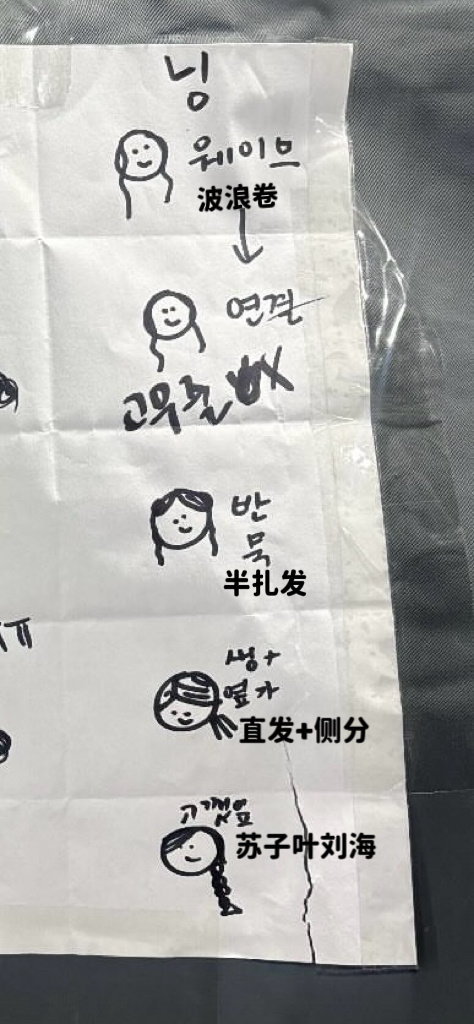 닝
웨이브
波浪卷
연결
고우즐
반
묵
半扎发
생+
옆가
直发+侧分
고깻잎
苏子叶刘海